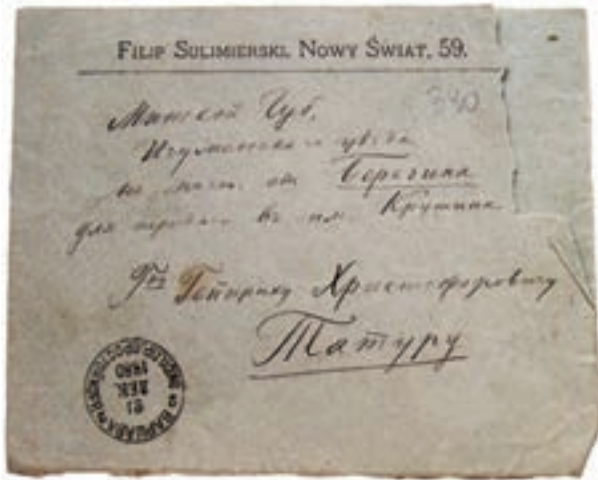 FILIP SULIMIERSKI, NOWY ŚWIAT, 59.
340
Минской Губ.
Игуменскаго уѣзда
отъ Березина
для передачи въ им. Крупица
Генриху Христофоровичу
Татуру
ВАРШАВА
21
ДЕК.
1880